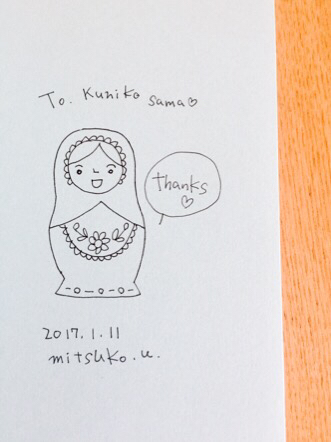 To. Kuniko sama♡
Thanks
♡
2017.1.11
mitsuko.u.